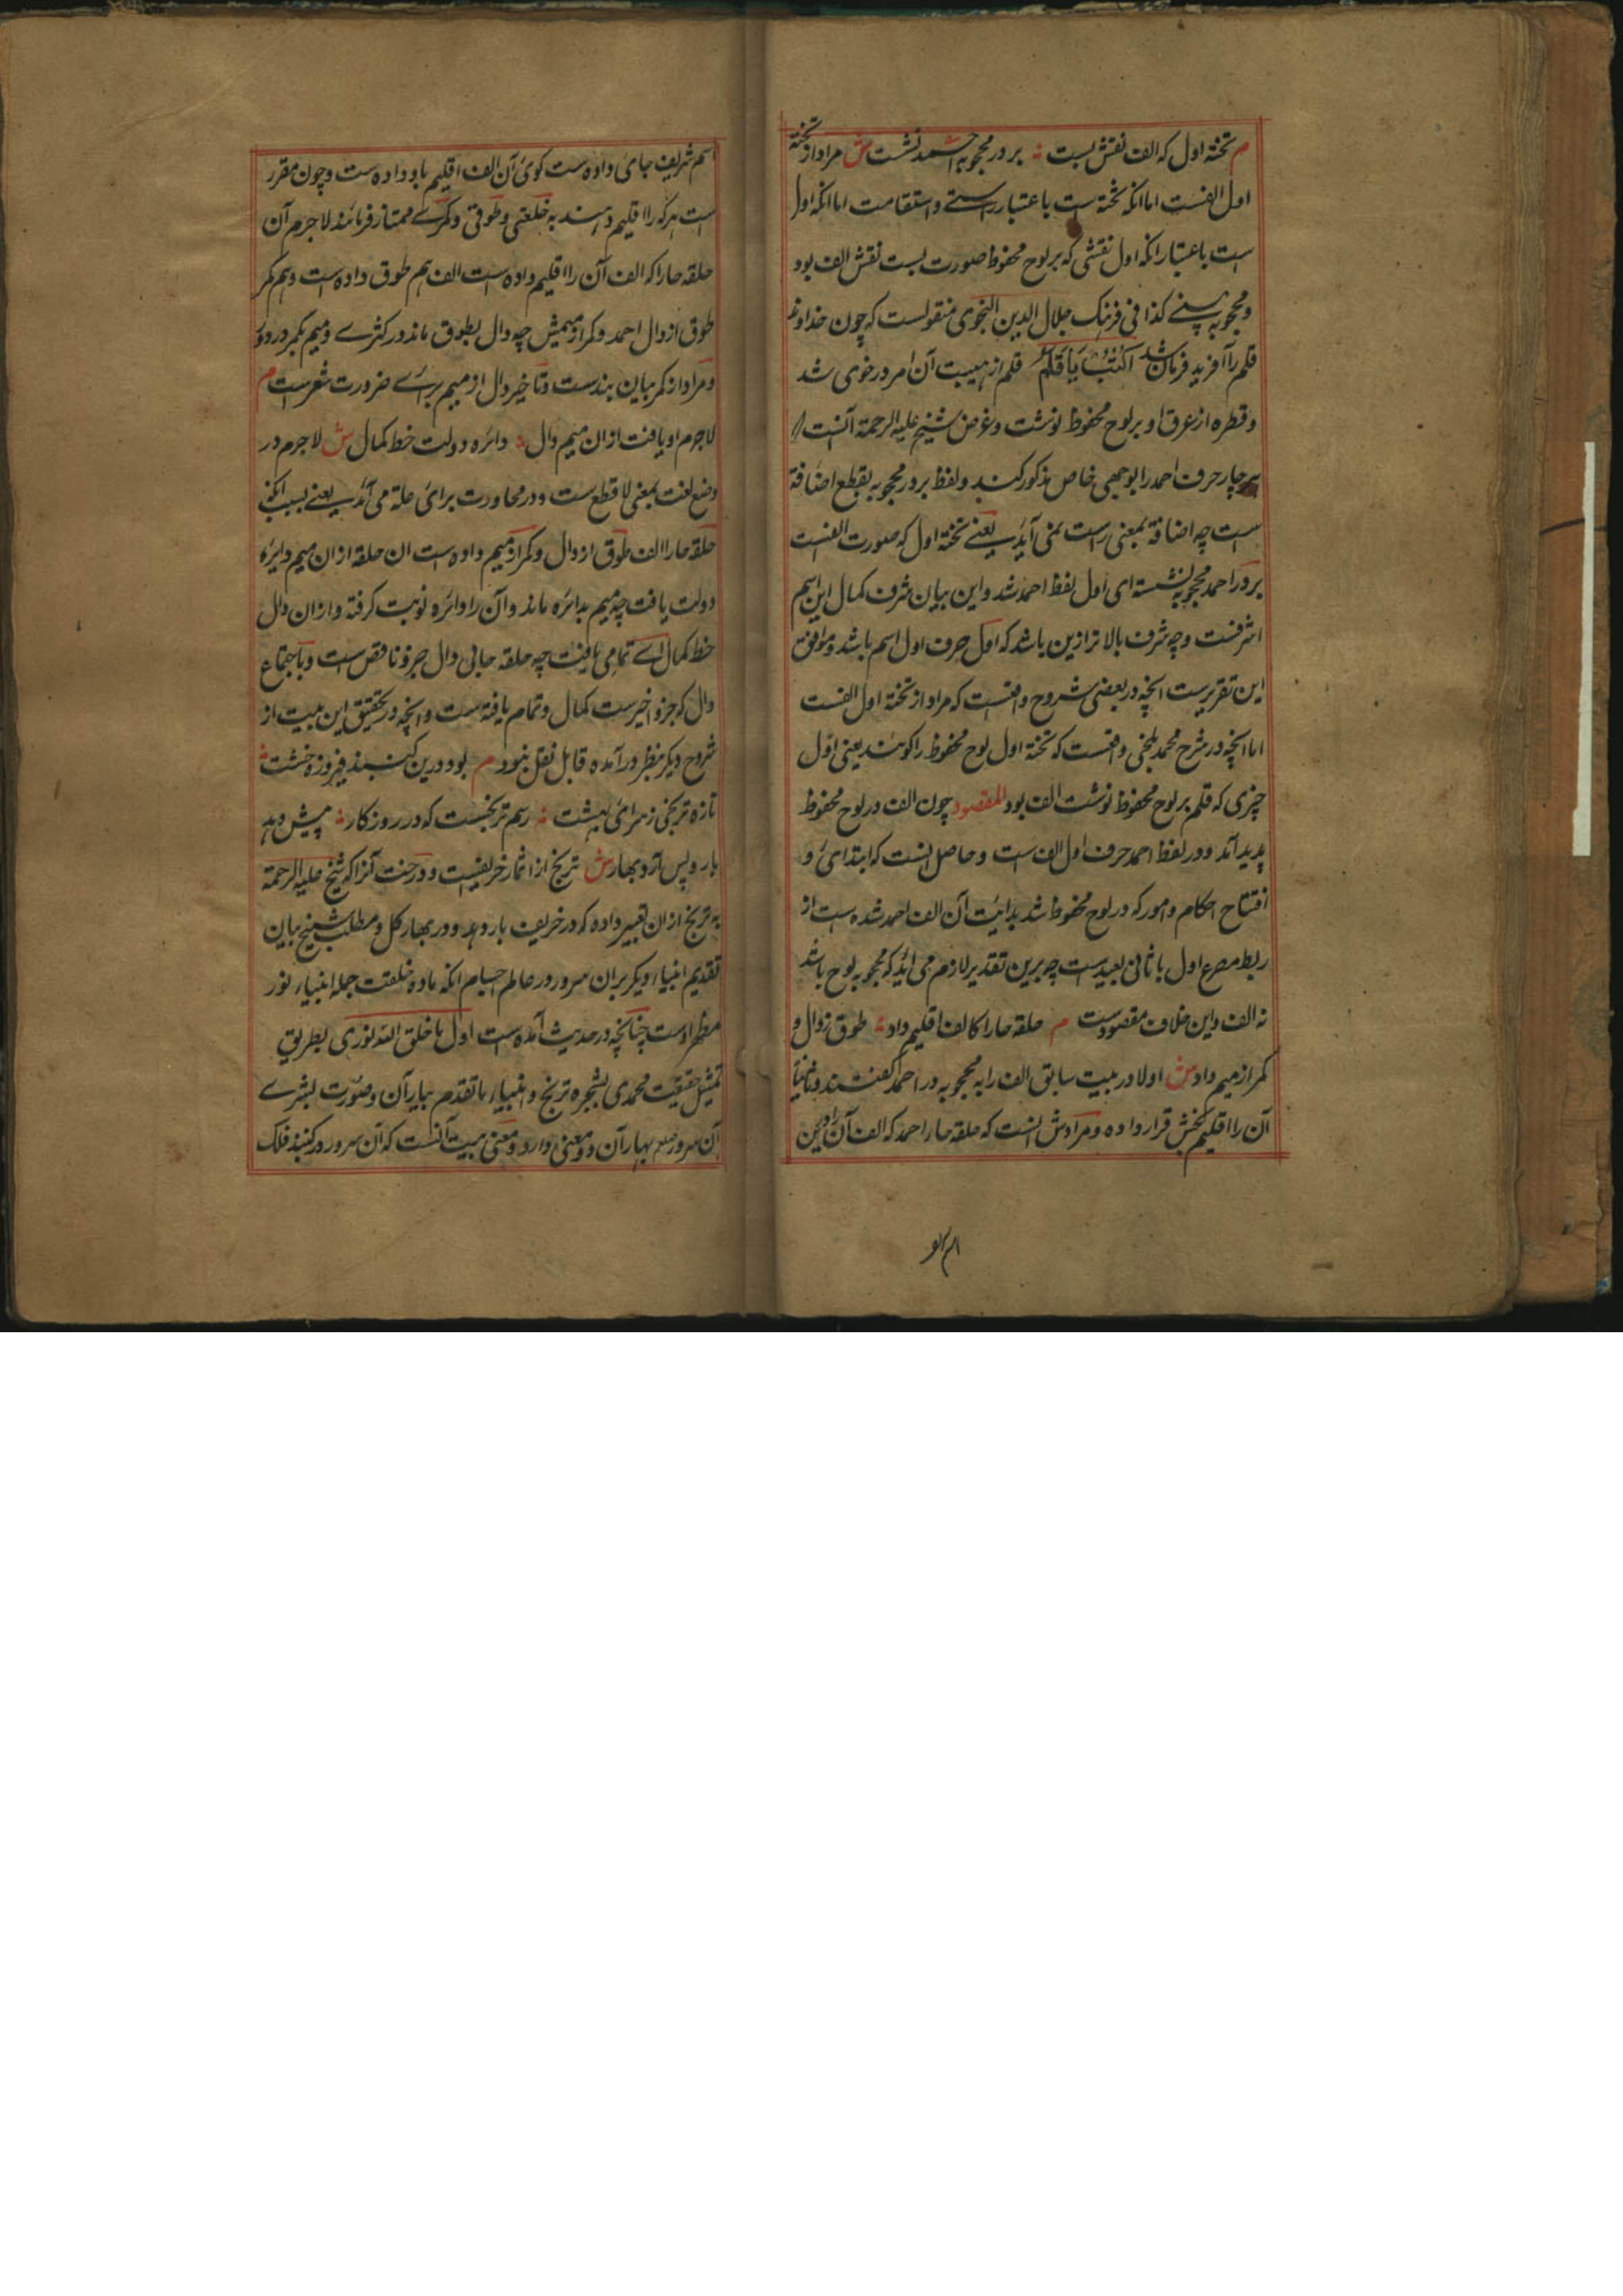 م تخته اول که الف نقش بست ؞ بر در محجوبه احمد نشست ش مراد از تخته
اول الفست اما انکه تخته است باعتبار راستی و استقامت اما انکه اول
است باعتبار انکه اول نقشی که بر لوح محفوظ صورت بست نقش الف بود
و محجوبه کذا فی فرهنک جلال الدین النجوی منقولست که چون خداوند
قلم را آفرید فرمان شد اکتب یا قلم قلم از هیبت آن امر در خوی شد
و قطره از عرق او بر لوح محفوظ نوشت و غرض شیخ علیه الرحمة آنست
هر چار حرف احمد را بوجهی خاص مذکور کنند و لفظ بر در محجوبه بقطع اضافة
است چه اضافة بمعنی راست نمی آید یعنی تخته اول که صورت الفست
بر در احمد محجوبه نشسته ای اول لفظ احمد شد و این بیان شرف کمال این اسم
اشرفست و چه شرف بالاتر ازین باشد که اول حرف اول اسم باشد و موافق
این تقریرست انچه در بعضی شروح واقعست که مراد از تخته اول الفست
اما انچه در شرح محمد بلخی واقعست که تخته اول لوح محفوظ را کویند یعنی اول
چیزی که قلم بر لوح محفوظ نوشت الف بود المقصود چون الف در لوح محفوظ
پدید آمد و در لفظ احمد حرف اول الف است و حاصل انست که ابتدای و
افتتاح احکام و امور که در لوح محفوظ شد بدایت آن الف احمد شده است از
ربط مصرع اول با ثانی بعید است چو برین تقدیر لازم می آید که محجوبه لوح باشد
نه الف و این خلاف مقصود ست م حلقه حا را کالف اقلیم داد ؞ طوق ز دال و
کمر از میم داد ش اولا در بیت سابق الف را به محجوبه در احمد گفتند و ثانیا
آن را اقلیم بخش قرار داده و مرادش انست که حلقه حا را احمد که الف آن را درین
اسم شریف جای داده است کوی آن الف اقلیم باو داده ست و چون مقرر
است هر که را اقلیم دهند به خلعتی و طوقی و کمرے ممتاز فرمایند لاجرم آن
حلقه حا را که الف آن را اقلیم داده است الف هم طوق داده است و هم کمر
طوق از دال احمد و کمر از میمش چه دال بطوق ماند در کثرے و میم بکمر در دور
و مراد از کمر میان بندست و تاخیر دال از میم براے ضرورت شعرست م
لاجرم او یافت از ان میم و دال ؞ دائره دولت خط کمال ش لاجرم در
وضع لغت بمعنی لا قطع ست و در محاورت برای علة می آید یعنی بسبب انکه
حلقه حا را الف طوق از دال و کمر از میم داده است ان حلقه از ان میم دایره
دولت یافت چه میم بدائره ماند و آن را دائره نوبت کرفته و از ان دال
خط کمال اے تمامی یافت چه حلقه حا بی دال جزو ناقص ست و باجتماع
دال که جزو اخیرست کمال و تمام یافته ست و انچه در تحقیق این بیت از
شروح دیکر بنظر در آمده قابل نقل نبود م بود درین کنبد فیروزه خشت ؞
تازه ترنجی ز سرای بهشت ؞ رسم ترنجست که در روزکار ؞ پیش دهد
بار و پس آرد بهار ش ترنج از اثمار خریفیست و درخت آنرا که شیخ علیه الرحمة
به ترنج از ان تعبیر داده که در خریف بار دهد و در بهار کل و مطلب شیخ بیان
تقدیم انبیاء دیکر بران سرور در عالم اجسام انکه ماده خلقت جمله انبیاء نور
مطهر اوست چنانچه در حدیث آمده ست اول ما خلق الله نوری بطریق
تمثیل حقیقت محمدی بشجره ترنج و انبیاء ما تقدم ببار آن و صورت بشرے
آن سرور صلعم بهار آن دو معنی دارد و معنی بیت آنست که آن سرور در کنبد فلک